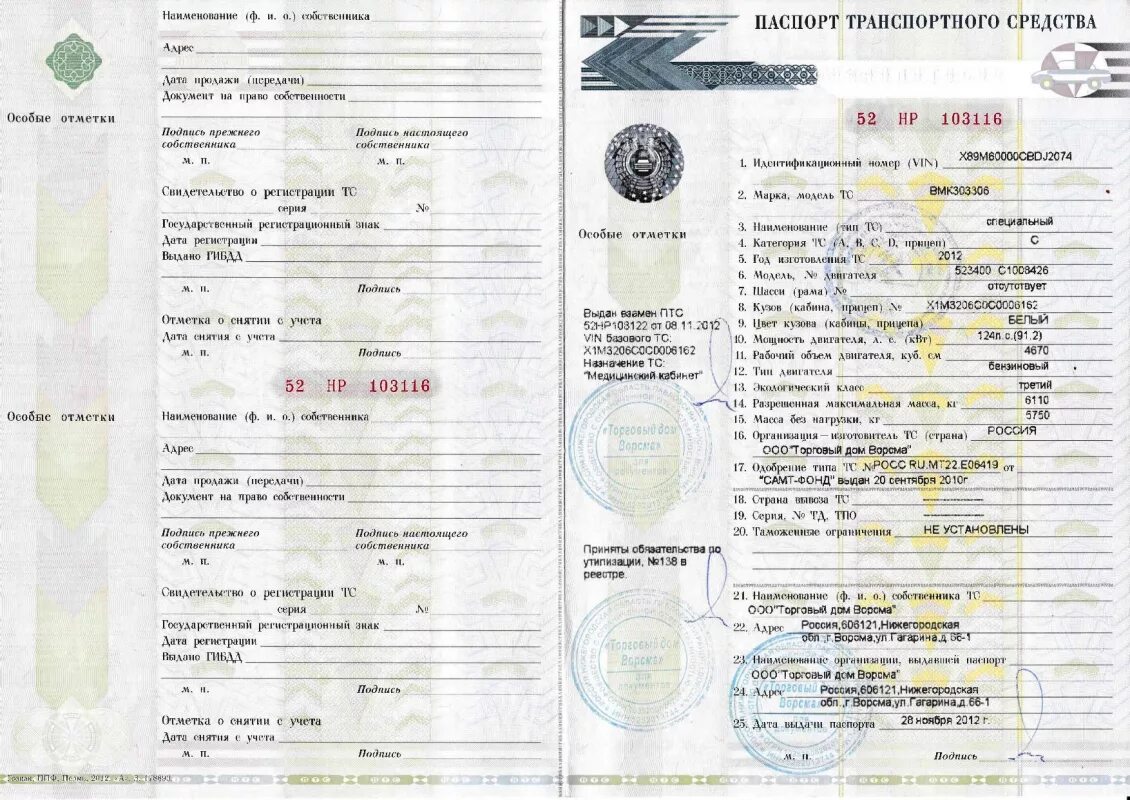 Особые отметки
Наименование (ф. и. о.) собственника
Адрес
Дата продажи (передачи)
Документ на право собственности
Подпись прежнего собственника
Подпись настоящего собственника
м. п.
м. п.
Свидетельство о регистрации ТС
серия №
Государственный регистрационный знак
Дата регистрации
Выдано ГИБДД
м. п. Подпись
Отметка о снятии с учета
Дата снятия с учета
м. п. Подпись
52 НР 103116
Особые отметки
Наименование (ф. и. о.) собственника
Адрес
Дата продажи (передачи)
Документ на право собственности
Подпись прежнего собственника
Подпись настоящего собственника
м. п.
м. п.
Свидетельство о регистрации ТС
серия №
Государственный регистрационный знак
Дата регистрации
Выдано ГИБДД
м. п. Подпись
Отметка о снятии с учета
Дата снятия с учета
м. п. Подпись
ППФ, Пермь, 2012, «А»,
ПАСПОРТ ТРАНСПОРТНОГО СРЕДСТВА
52 НР 103116
Особые отметки
Выдан взамен ПТС
52НР103122 от 08.11.2012
VIN базового ТС:
X1M3206C0C0006162
Назначение ТС:
"Медицинский кабинет"
«Торговый дом
Ворсма»
для
документов
Приняты обязательства по
утилизации, №138 в
реестре.
«Торговый дом
Ворсма»
для
документов
1. Идентификационный номер (VIN) X89M60000CBDJ2074
2. Марка, модель ТС ВМК303306
3. Наименование (тип ТС) специальный
4. Категория ТС (А, В, С, D, прицеп) С
5. Год изготовления ТС 2012
6. Модель, № двигателя 523400 С1008426
7. Шасси (рама) № отсутствует
8. Кузов (кабина, прицеп) № X1M3206C0C0006162
9. Цвет кузова (кабины, прицепа) БЕЛЫЙ
10. Мощность двигателя, л. с. (кВт) 124л.с.(91.2)
11. Рабочий объем двигателя, куб. см 4670
12. Тип двигателя бензиновый
13. Экологический класс третий
14. Разрешенная максимальная масса, кг 6110
15. Масса без нагрузки, кг 5750
16. Организация–изготовитель ТС (страна) РОССИЯ
ООО"Торговый дом Ворсма"
17. Одобрение типа ТС №РОСС RU.МТ22.Е06419 от
"САМТ-ФОНД" выдан 20 сентября 2010г.
18. Страна вывоза ТС
19. Серия, № ТД, ТПО
20. Таможенные ограничения НЕ УСТАНОВЛЕНЫ
21. Наименование (ф. и. о.) собственника ТС
ООО"Торговый дом Ворсма"
22. Адрес Россия,606121,Нижегородская
обл.,г.Ворсма,ул.Гагарина,д.66-1
23. Наименование организации, выдавшей паспорт
ООО"Торговый дом Ворсма"
24. Адрес Россия,606121,Нижегородская
обл.,г.Ворсма,ул.Гагарина,д.66-1
25. Дата выдачи паспорта 28 ноября 2012 г.
м. п. Подпись